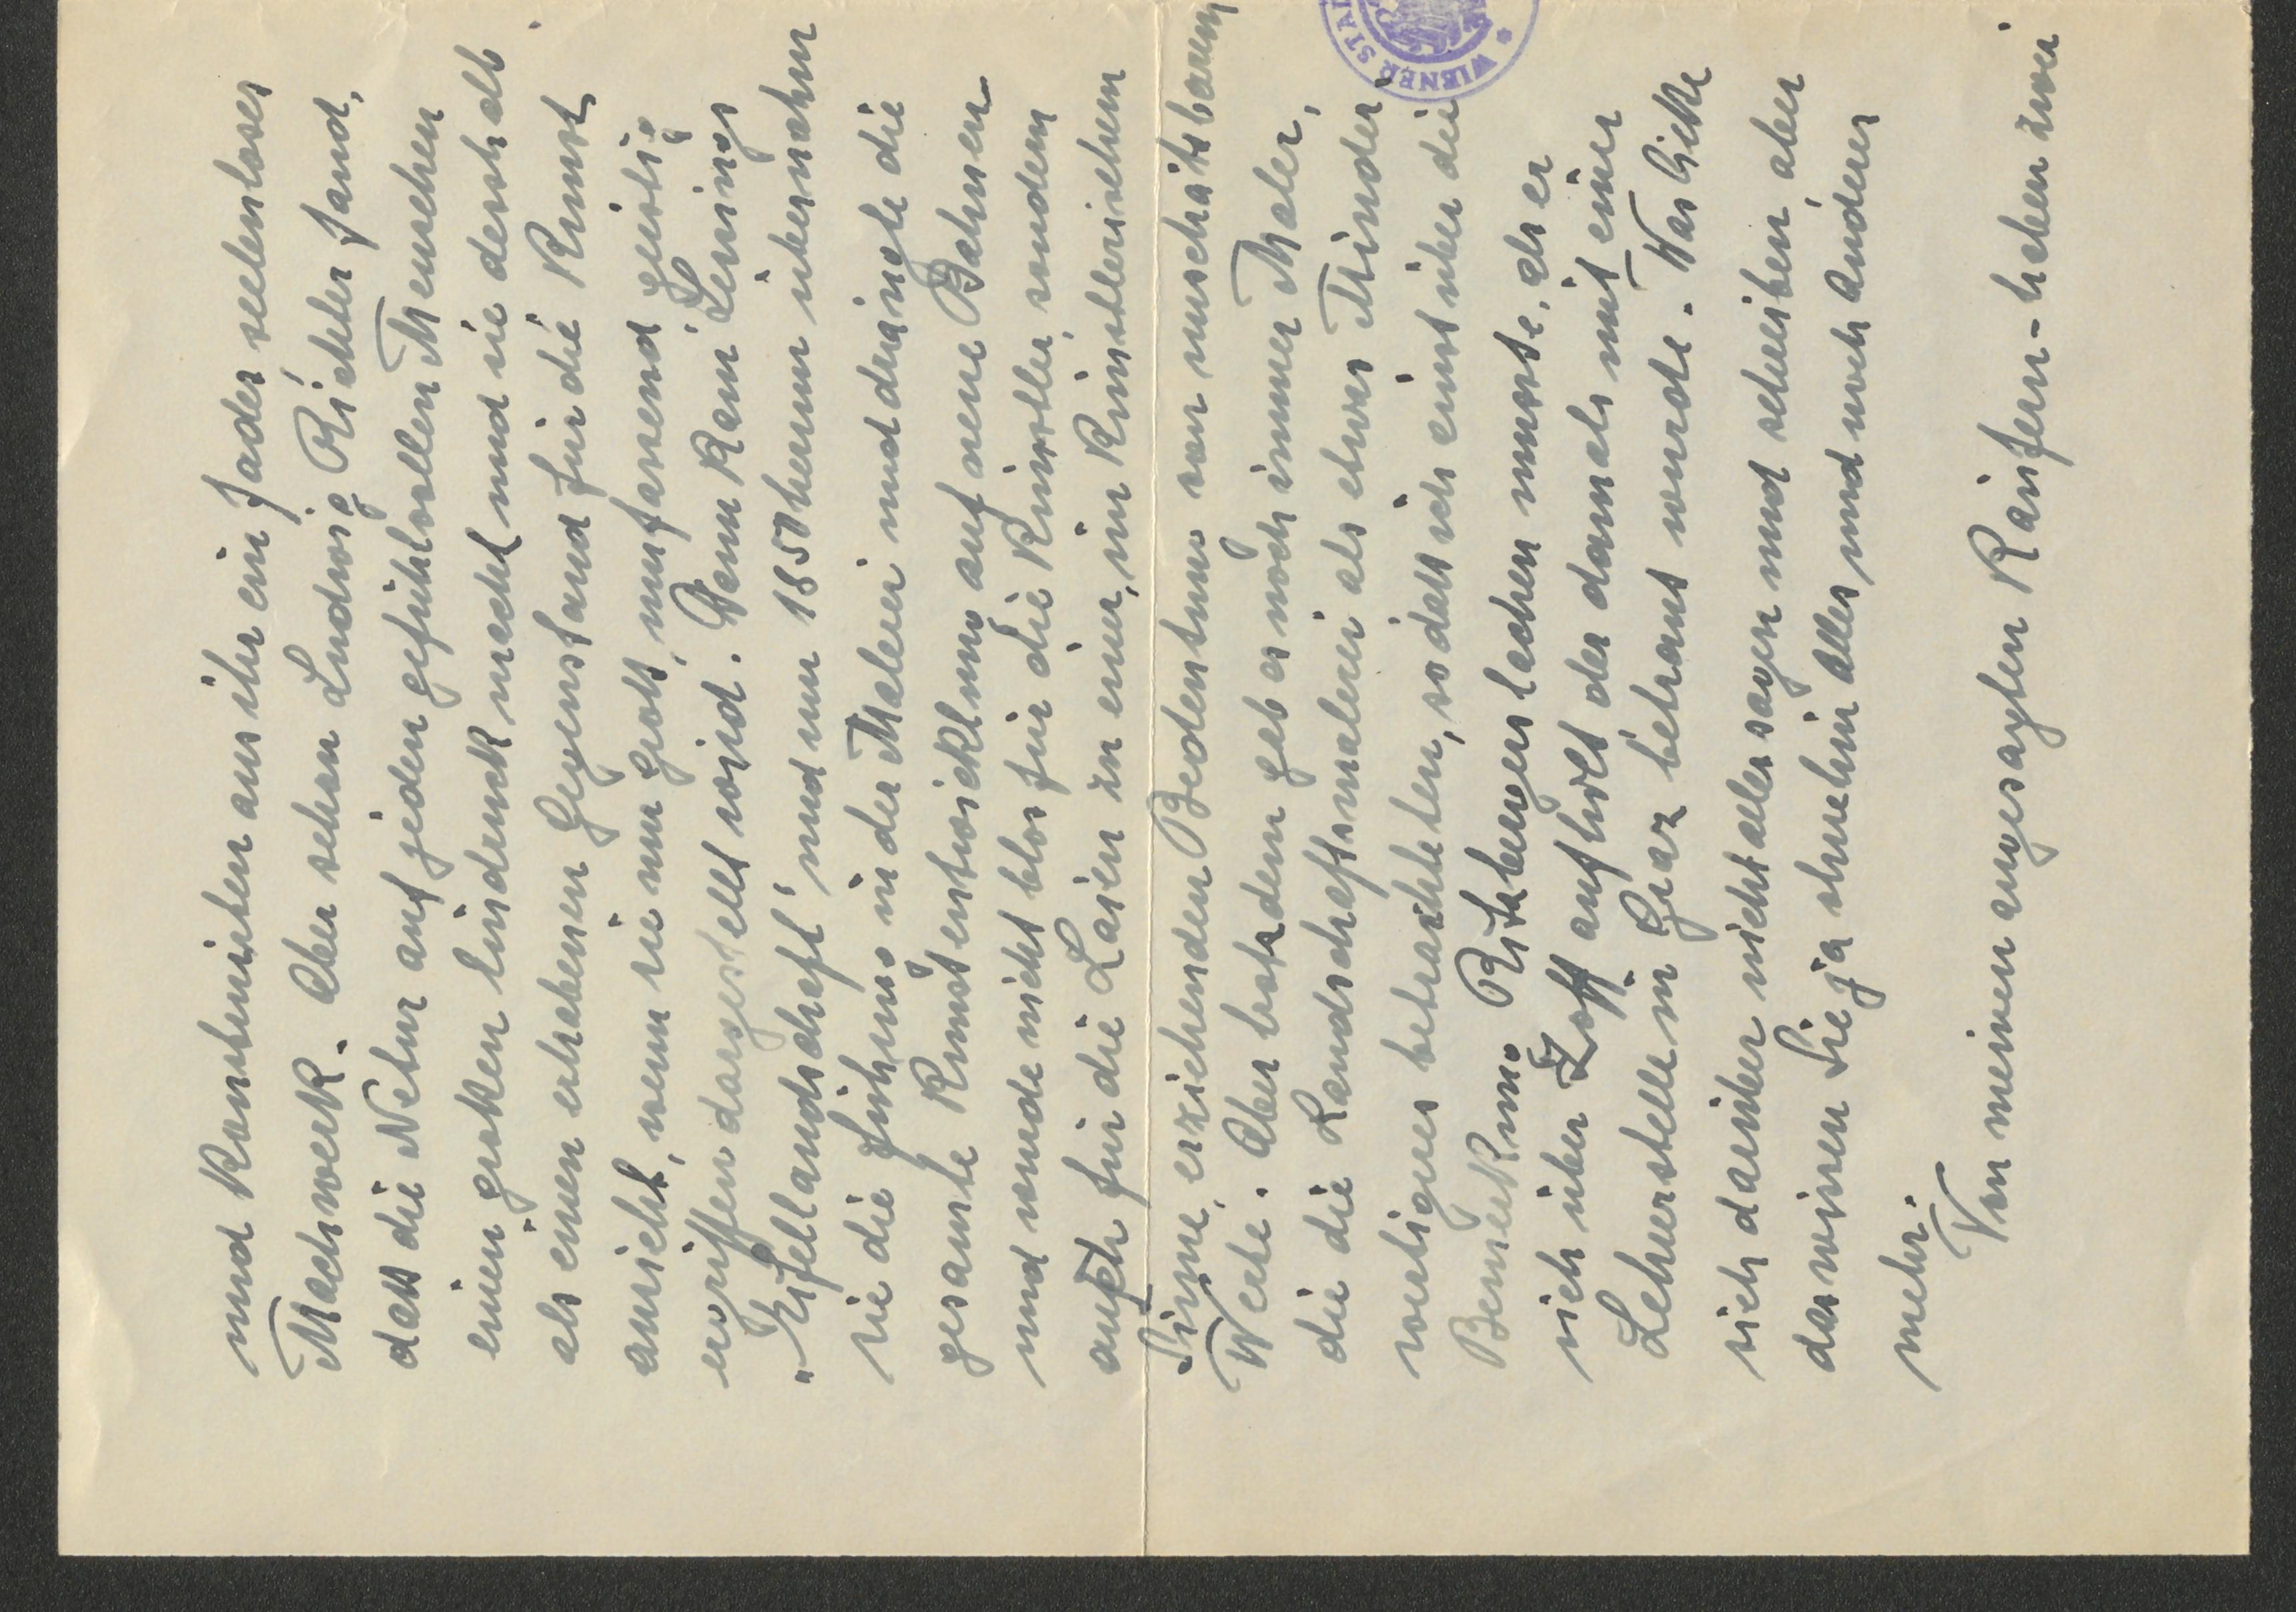 und konstruierten aus ihr ein fades seelenloses
Machwerk. Aber schon Ludwig Richter fand,
dass die Natur auf jeden gefühlvollen Menschen
einen grossen Eindruck macht und sie deshalb
als einen erhabenen Gegenstand für die Kunst
ansieht, wenn sie nur gross, umfassend, geistig
ergriffen dargestellt wird. Dann kam Lessings
"Eifellandschaft" und nun 1850 herum übernahm
sie die Führung in der Malerei und drängte die
gesamte Kunstentwicklung auf neue Bahnen
und wurde nicht blos für die Künstler, sondern
auch für die Laien zu einer, im künstlerischen
Sinne, erziehenden Bedeutung von unschätzbarem
Werte. Aber trotzdem gab es noch immer Maler,
die die Landschaftsmalerei als etwas Minder-
wertiges betrachteten, sodass ich einst über die
Bemerkung Ritzbergers lachen musste, als er
sich über Zoff aufhielt der damals mit einer
Lehrerstelle in Graz betraut wurde. Was liesse
sich darüber nicht alles sagen und schreiben, aber
das wissen Sie ja ohnehin alles und noch anderes
mehr.
Von meinen angesagten Käufern - haben zwei
WIENER